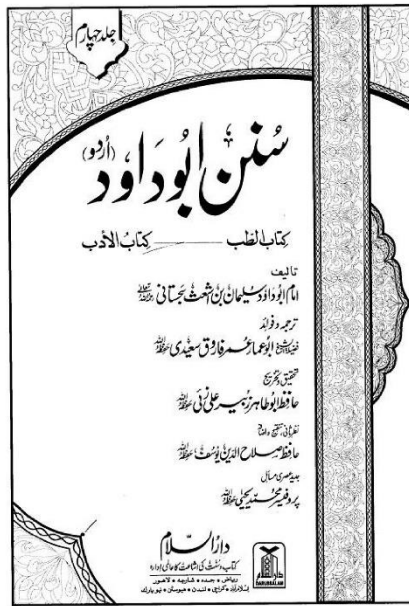 جلد چہارم
سُنن ابُو دَاوٗد (اُردو)
کتاب الطب ——— کتابُ الأدب
تالیف
امام ابو داود سلیمان بن اشعث سجستانی رحمہ اللہ تعالیٰ
ترجمہ و فوائد
فضیلۃ الشیخ ابوعمار عمر فاروق سعیدی حفظہ اللہ
تحقیق و تخریج
حافظ ابو طاہر زبیر علی زئی حفظہ اللہ
نظرثانی، تنقیح و اضافہ
حافظ صلاح الدین یوسف حفظہ اللہ
جدید عصری مسائل
پروفیسر محمد یحییٰ حفظہ اللہ
دارُالسلام
کتاب و سنت کی اشاعت کا عالمی ادارہ
ریاض • جدہ • شارجہ • لاہور
اسلام آباد • کراچی • لندن • ہیوسٹن • نیویارک
دارالسلام
DARUSSALAM